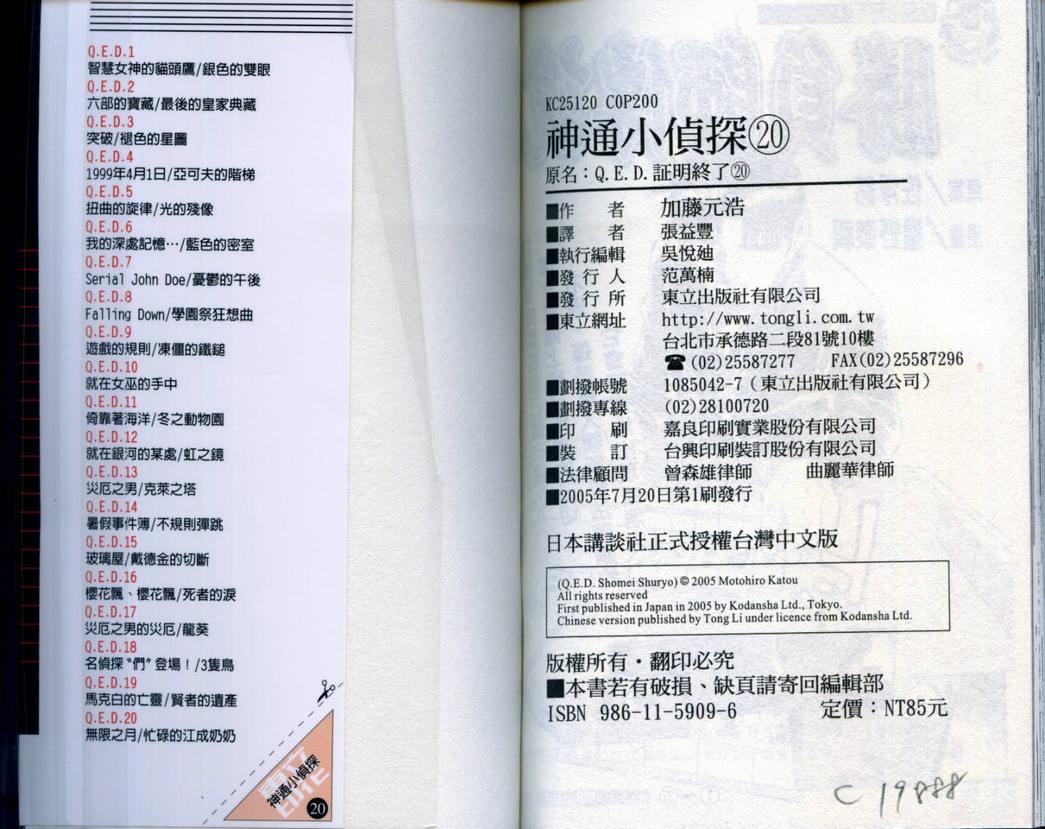 Q.E.D.1
智慧女神的貓頭鷹/銀色的雙眼
Q.E.D.2
六部的寶藏/最後的皇家典藏
Q.E.D.3
突破/褪色的星圖
Q.E.D.4
1999年4月1日/亞可夫的階梯
Q.E.D.5
扭曲的旋律/光的殘像
Q.E.D.6
我的深處記憶…/藍色的密室
Q.E.D.7
Serial John Doe/憂鬱的午後
Q.E.D.8
Falling Down/學園祭狂想曲
Q.E.D.9
遊戲的規則/凍僵的鐵鎚
Q.E.D.10
就在女巫的手中
Q.E.D.11
倚靠著海洋/冬之動物園
Q.E.D.12
就在銀河的某處/虹之鏡
Q.E.D.13
災厄之男/克萊之塔
Q.E.D.14
暑假事件簿/不規則彈跳
Q.E.D.15
玻璃屋/戴德金的切斷
Q.E.D.16
櫻花飄、櫻花飄/死者的淚
Q.E.D.17
災厄之男的災厄/龍葵
Q.E.D.18
名偵探〝們〞登場！/3隻鳥
Q.E.D.19
馬克白的亡靈/賢者的遺產
Q.E.D.20
無限之月/忙碌的江成奶奶
東立
印花
神通小偵探
20
KC25120 C0P200
神通小偵探⑳
原名：Q.E.D.証明終了⑳
■作 者 加藤元浩
■譯 者 張益豐
■執行編輯 吳悅廸
■發 行 人 范萬楠
■發 行 所 東立出版社有限公司
■東立網址 http://www.tongli.com.tw
台北市承德路二段81號10樓
☎(02)25587277 FAX(02)25587296
■劃撥帳號 1085042-7（東立出版社有限公司）
■劃撥專線 (02)28100720
■印 刷 嘉良印刷實業股份有限公司
■裝 訂 台興印刷裝訂股份有限公司
■法律顧問 曾森雄律師 曲麗華律師
■2005年7月20日第1刷發行
日本講談社正式授權台灣中文版
(Q.E.D. Shomei Shuryo) © 2005 Motohiro Katou
All rights reserved
First published in Japan in 2005 by Kodansha Ltd., Tokyo.
Chinese version published by Tong Li under licence from Kodansha Ltd.
版權所有・翻印必究
■本書若有破損、缺頁請寄回編輯部
ISBN 986-11-5909-6 定價：NT85元
C 19888